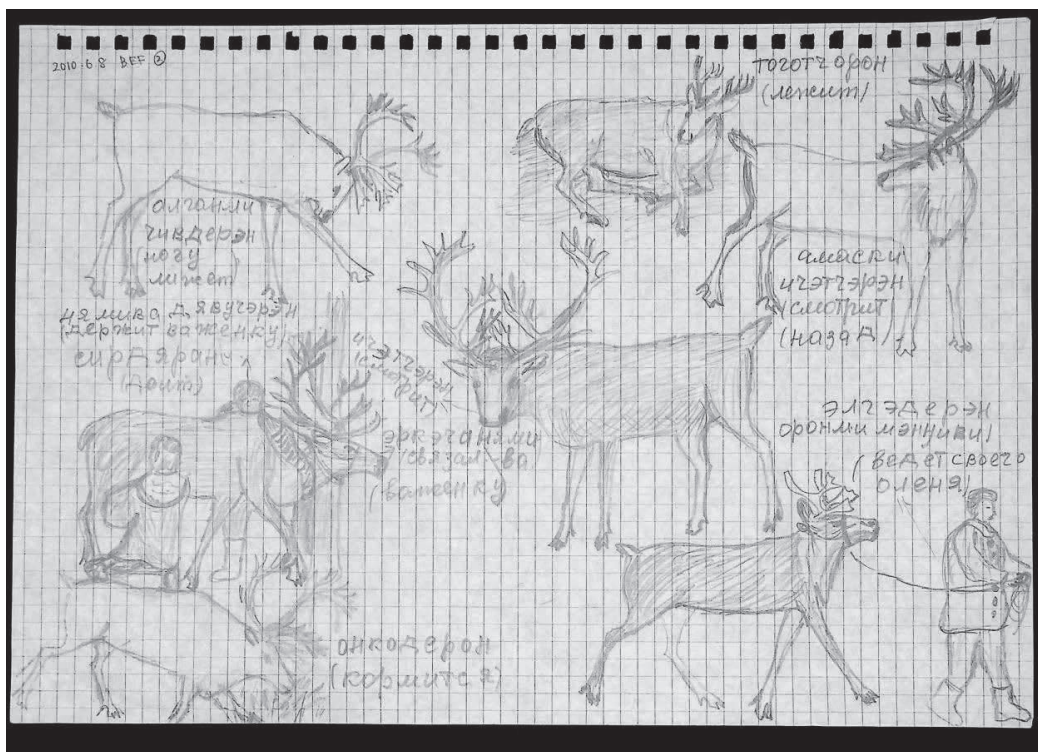 2010.6.8 BEF ②
тоготчорон
(лежит)
алганми
чивдерэн
(ногу
лижет)
амаски
ичэтчэрэн
(смотрит
(назад)
нямива дявучэрэн
(держит важенку)
сирдяран
(доит)
ичэтчэрэн
(смотрит)
эркэчанями
(связал-ва
(важенку
элгэдерэн
оронми мэнӈиви)
(ведет своего
оленя)
онкодерон
(кормится)